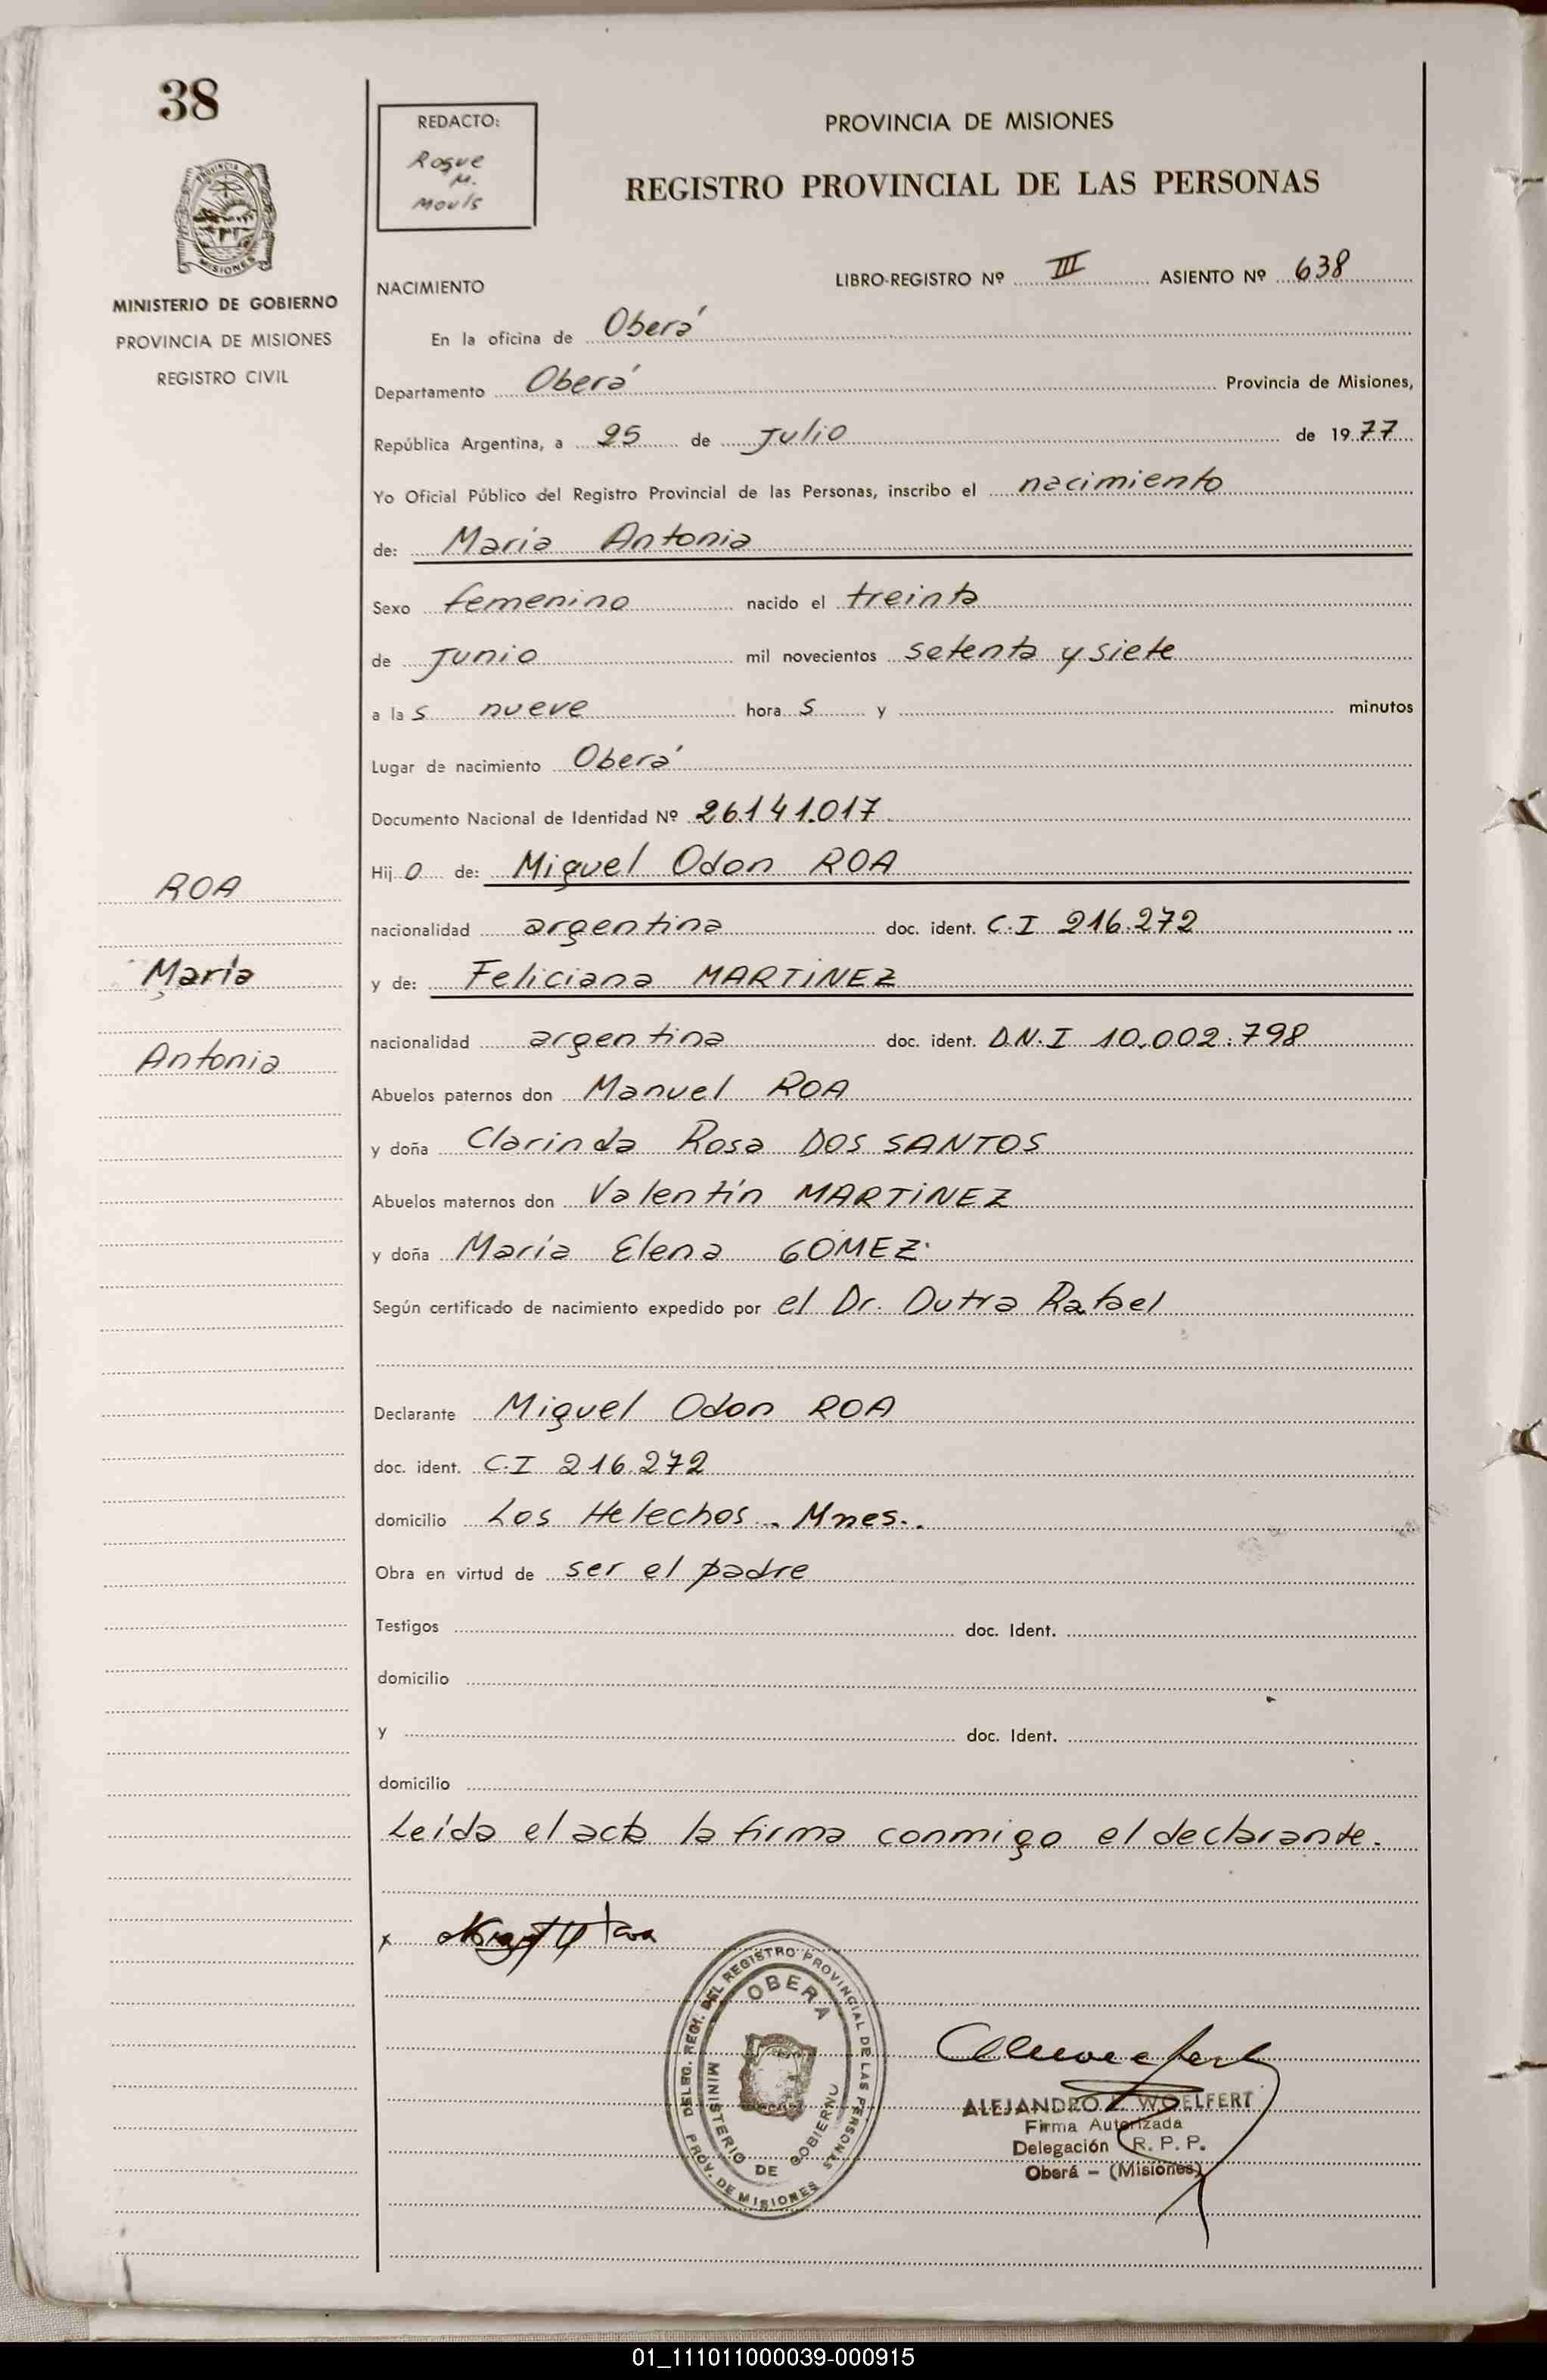 38
REDACTO:
Roque
M.
Mouls
PROVINCIA DE MISIONES
REGISTRO PROVINCIAL DE LAS PERSONAS
PROVINCIA DE
MISIONES
MINISTERIO DE GOBIERNO
PROVINCIA DE MISIONES
REGISTRO CIVIL
NACIMIENTO
LIBRO-REGISTRO Nº III ASIENTO Nº 638
En la oficina de Oberá
Departamento Oberá Provincia de Misiones,
República Argentina, a 25 de Julio de 1977
Yo Oficial Público del Registro Provincial de las Personas, inscribo el nacimiento
de: Maria Antonia
Sexo femenino nacido el treinta
de Junio mil novecientos setenta y siete
a las nueve horas y minutos
Lugar de nacimiento Oberá
Documento Nacional de Identidad Nº 26.141.017
Hijo de: Miguel Odon ROA
ROA
nacionalidad argentina doc. ident. C.I 216.272
María
y de: Feliciana MARTiNEZ
nacionalidad argentina doc. ident. D.N.I 10.002.798
Antonia
Abuelos paternos don Manuel ROA
y doña Clarinda Rosa DOS SANTOS
Abuelos maternos don Valentín MARTiNEZ
y doña María Elena GOMEZ
Según certificado de nacimiento expedido por el Dr. Dutra Rafael
Declarante Miguel Odon ROA
doc. ident. C.I 216.272
domicilio Los Helechos - Mnes.
Obra en virtud de ser el padre
Testigos doc. Ident.
domicilio
y doc. Ident.
domicilio
Leída el acta la firma conmigo el declarante.
x Roa
DELEG. REGI. DEL REGISTRO PROVINCIAL DE LAS PERSONAS
OBERA
MINISTERIO DE GOBIERNO
PROV. DE MISIONES
ALEJANDRO WOELFERT
Firma Autorizada
Delegación R. P. P.
Oberá - (Misiones)
01_111011000039-000915